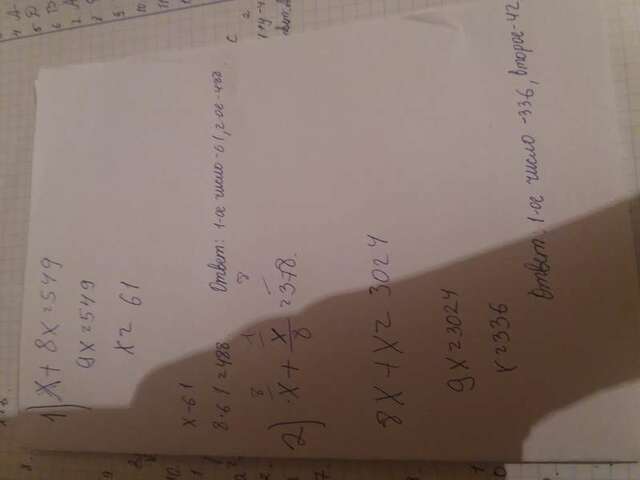 1) x + 8x = 549
9x = 549
x = 61
x - 61
8·61 = 488
Ответ: 1-ое число - 61, 2-ое - 488
8 1 8
2) x + x/8 = 378.
8x + x = 3024
9x = 3024
x = 336
Ответ: 1-ое число - 336, второе - 42